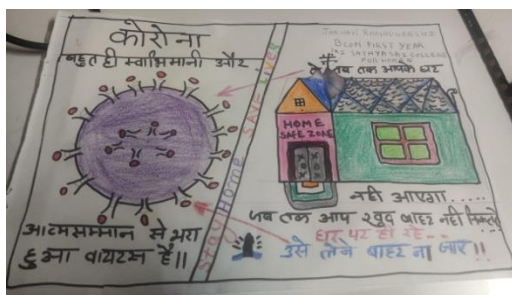 कोरोना
बहुत ही स्वाभिमानी और
आत्मसम्मान से भरा
हुआ वायरस है॥
Stay Home Save Lives
BCOM FIRST YEAR
COLLEGE
तब तक आपके घर
HOME
SAFE ZONE
नही आएगा.....
जब तक आप खुद बाहर नही
घर पर ही रहे...
उसे लेने बाहर ना जाए!!